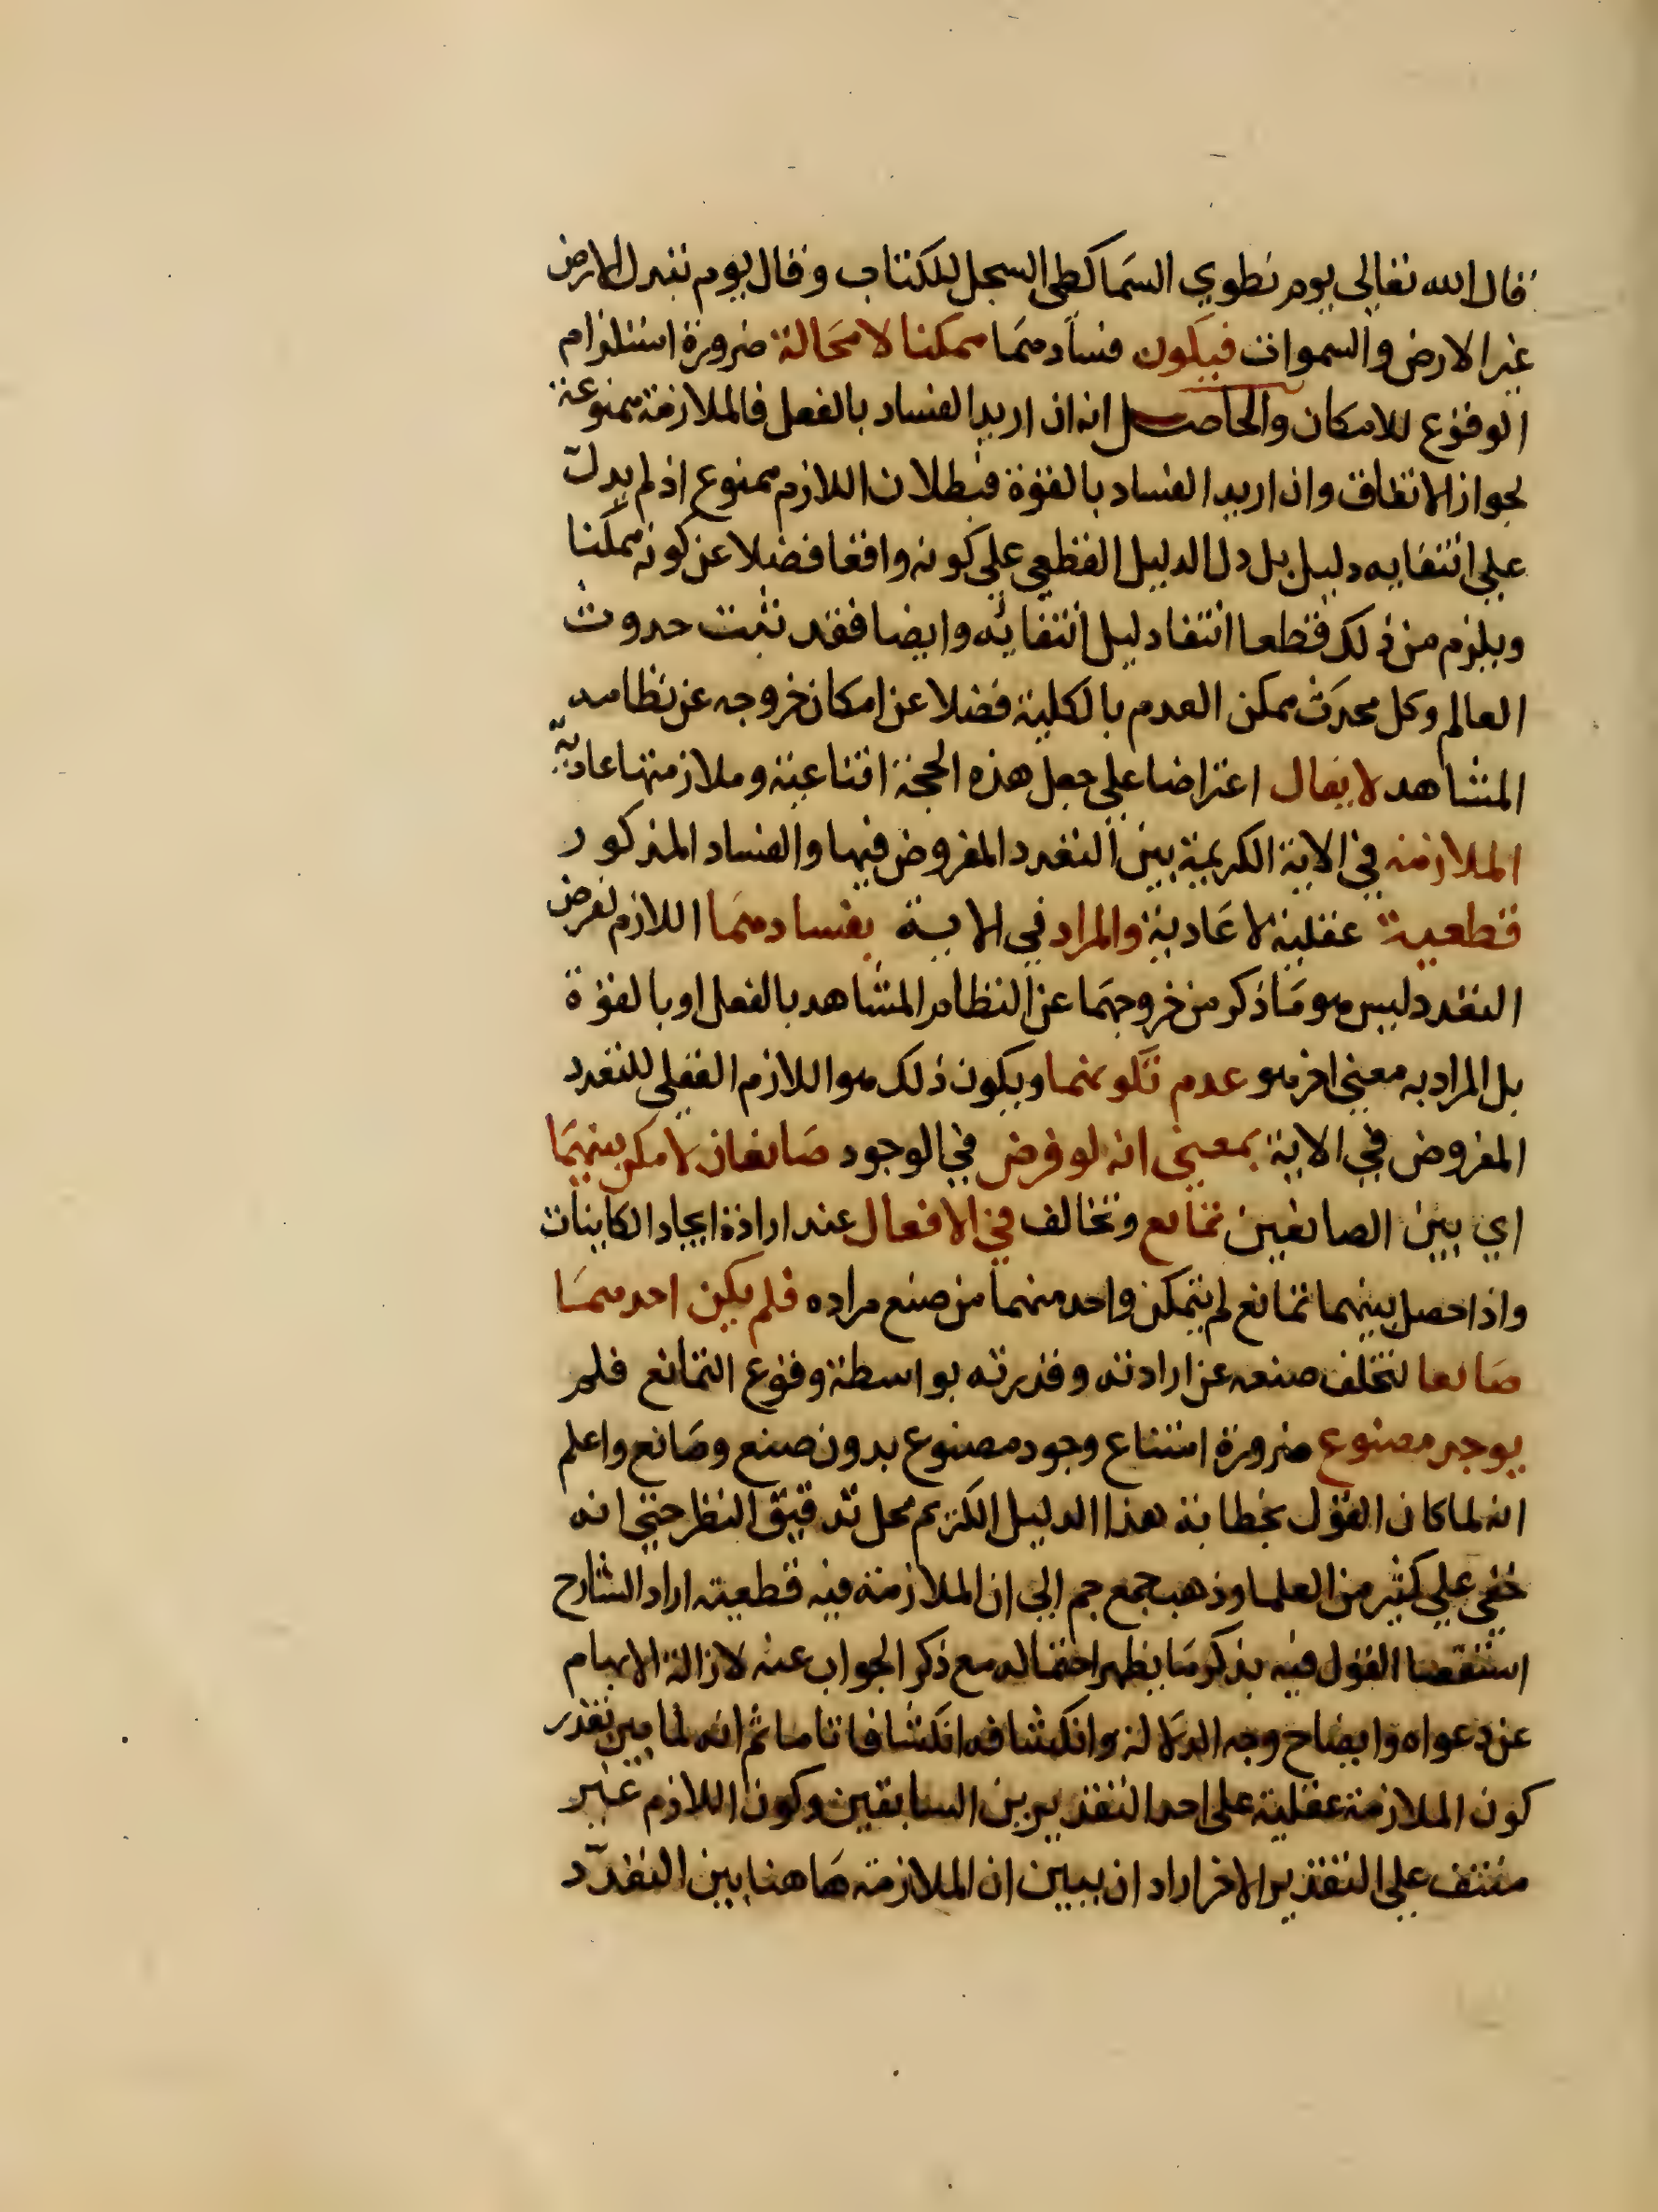 قال الله تعالى يوم نطوي السما كطي السجل للكتاب وقال يوم تبدل الارض
غير الارض والسموات فيكون فسادهما ممكنا لا محالة ضرورة استلزام
الوقوع للامكان والحاصل انه ان اريد الفساد بالفعل فالملازمة ممنوعة
لجواز الاتفاق وان اريد الفساد بالقوة فبطلان اللازم ممنوع اذ لم يدل
علي انتفايه دليل بل دل الدليل القطعي علي كونه واقعا فضلا عن كونه ممكنا
ويلزم من ذلك قطعا انتفا دليل انتفائه وايضا فقد ثبت حدوث
العالم وكل محدث ممكن العدم بالكلية فضلا عن امكان خروجه عن نظامه
المشاهد لا يقال اعتراضا علي جعل هذه الحجة اقناعية وملازمتها عادية
الملازمة في الاية الكريمة بين التعدد المفروض فيها والفساد المذكور
قطعية عقلية لا عادية والمراد في الاية بفسادهما اللازم لفرض
التعدد ليس هو ما ذكر من خروجهما عن النظام المشاهد بالفعل او بالقوة
بل المراد به معني اخر هو عدم تكونهما ويكون ذلك هو اللازم العقلي للتعدد
المفروض في الاية بمعني انه لو فرض في الوجود صانعان لامكن بينهما
اي بين الصانعين تمانع وتخالف في الافعال عند ارادة ايجاد الكاينات
واذا حصل بينهما تمانع لم يتمكن واحد منهما من صنع مراده فلم يكن احدهما
صانعا لتخلف صنعه عن ارادته وقدرته بواسطة وقوع التمانع فلم
يوجد مصنوع ضرورة امتناع وجود مصنوع بدون صنع وصانع واعلم
انه لما كان القول بخطابة هذا الدليل الكريم محل تدقيق النظر حتي انه
خفي علي كثير من العلما وذهب جمع جم الي ان الملازمة فيه قطعية اراد الشارح
استقصا القول فيه بذكر ما يظهر احتماله مع ذكر الجواب عنه لازالة الابهام
عن دعواه وايضاح وجه الدلالة وانكشافه انكشافا تاما ثم انه لما بين تعذر
كون الملازمة عقلية علي احد التقديرين السابقين وكون اللازم غير
منتف علي التقدير الاخر اراد ان يبين ان الملازمة هاهنا بين التعدد